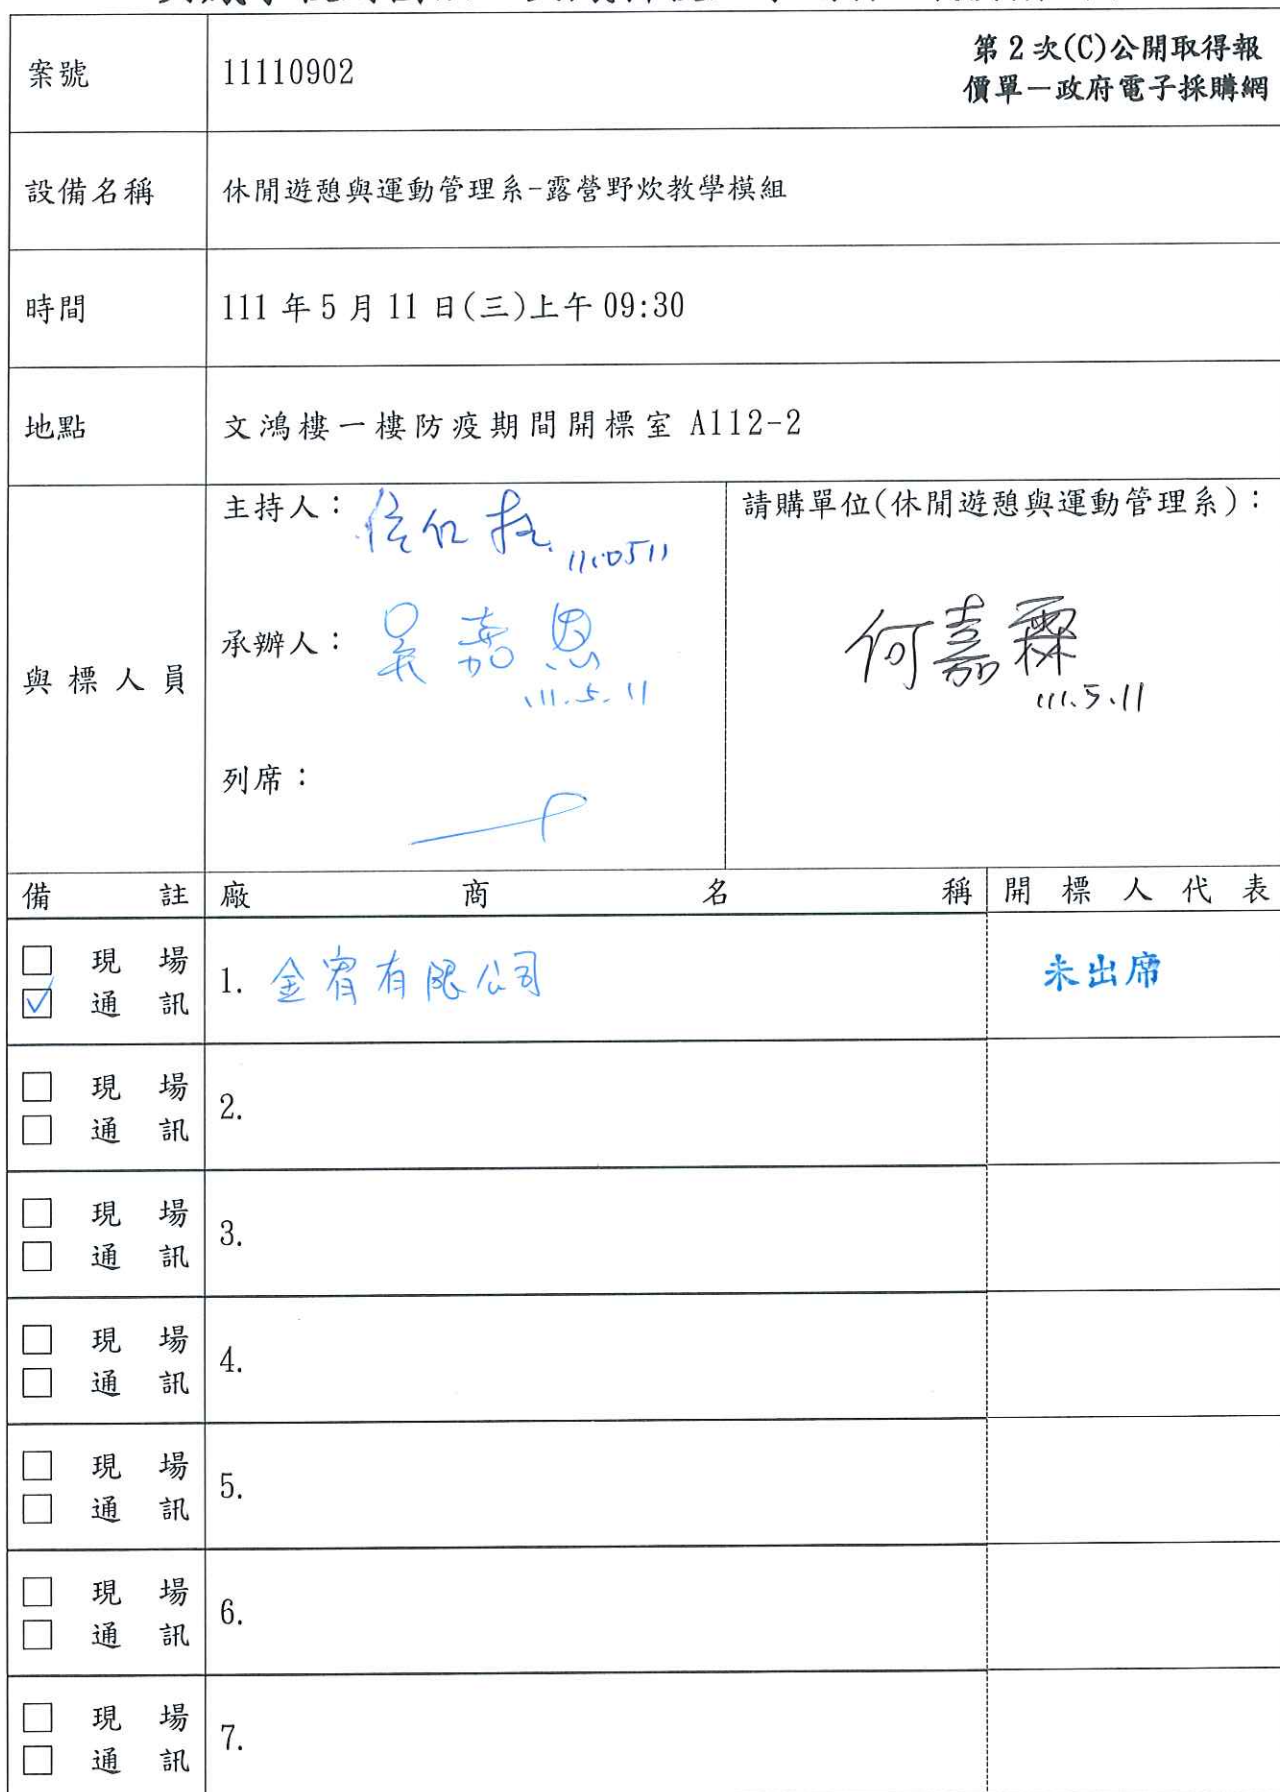 案號 11110902 第2次(C)公開取得報
價單－政府電子採購網
設備名稱 休閒遊憩與運動管理系-露營野炊教學模組
時間 111年5月11日(三)上午09:30
地點 文鴻樓一樓防疫期間開標室 A112-2
與標人員
主持人： 1110511
請購單位(休閒遊憩與運動管理系)：
承辦人： 吳嘉恩
111.5.11
何嘉霖
111.5.11
列席：
備註 廠商名稱 開標人代表
□ 現場
☑ 通訊
1. 金宥有限公司 未出席
□ 現場
□ 通訊
2.
□ 現場
□ 通訊
3.
□ 現場
□ 通訊
4.
□ 現場
□ 通訊
5.
□ 現場
□ 通訊
6.
□ 現場
□ 通訊
7.